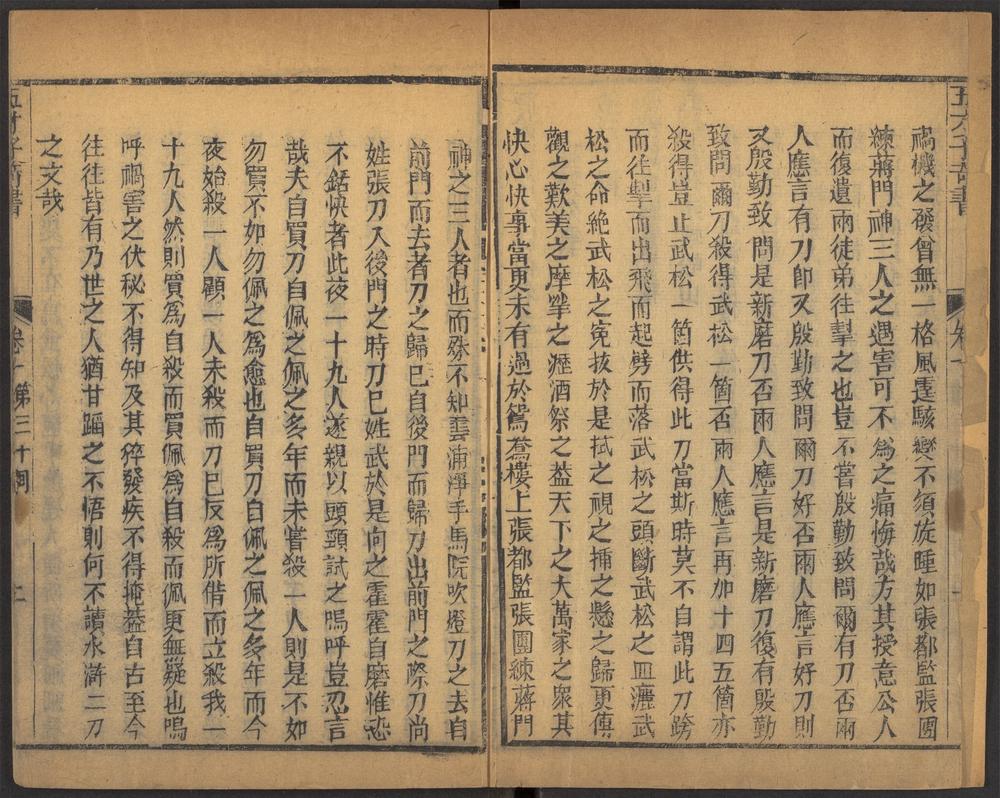 禍機之發曾無一格風霆駭變不須旋踵如張都監張團
練蔣門神三人之遇害可不爲之痛悔哉方其授意公人
而復遺兩徒弟往掣之也豈不嘗殷勤致問爾有刀否兩
人應言有刀即又殷勤致問爾刀好否兩人應言好刀則
又殷勤致問是新磨刀否兩人應言是新磨刀復有殷勤
致問爾刀殺得武松一箇否兩人應言再加十四五箇亦
殺得豈止武松一箇供得此刀當斯時莫不自謂此刀跨
而往掣而出飛而起劈而落武松之頭斷武松之血灑武
松之命絕武松之寃拔於是拭之視之揷之懸之歸更傳
觀之歎美之摩挲之瀝酒祭之葢天下之大萬家之衆其
快心快事當更未有過於鴛鴦樓上張都監張團練蔣門
神之三人者也而殊不知雲浦淨手馬院吹燈刀之去自
前門而去者刀之歸已自後門而歸刀出前門之際刀尚
姓張刀入後門之時刀已姓武於是向之霍霍自磨惟恐
不銛快者此夜一十九人遂親以頭頸試之嗚呼豈忍言
哉夫自買刀自佩之佩之多年而未嘗殺一人則是不如
勿買不如勿佩之爲愈也自買刀自佩之佩之多年而今
夜始殺一人顧一人未殺而刀已反爲所借而立殺我一
十九人然則買爲自殺而買佩爲自殺而佩更無疑也嗚
呼禍害之伏秘不得知及其猝發疾不得掩葢自古至今
往往皆有乃世之人猶甘蹈之不悟則何不讀水滸二刀
之文哉
卷十 第三十囘